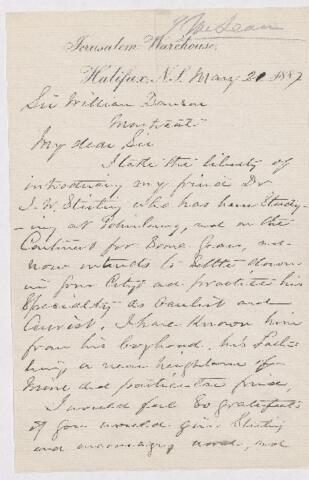 J McLean
Jerusalem Warehouse,
Halifax, N.S. May 21 1887
Sir William Dawson
Montreal
My dear Sir
I take the liberty of
introducing my friend Dr
J. W. Stirling who has been Study-
-ing at Edinburg, and on the
Continent for Some Years, and
now intends to Settle down
in your City and practice his
Speciality as Oculist and
Aurist. I have known him
from his boyhood, his Father
being a near neighbour of
mine and particular friend,
I would feel So grateful
if you would give Stirling
and encouraging word, and